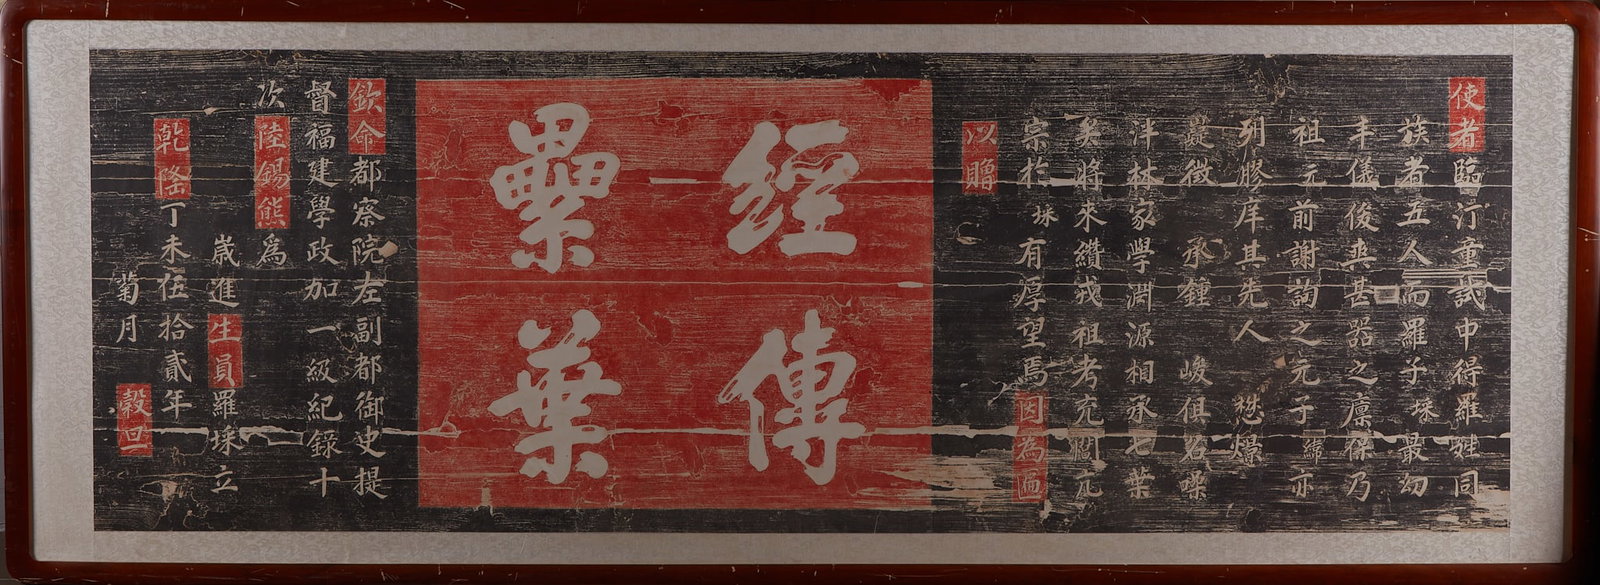 使者臨汀童試中得羅姓同
族者五人而羅子埰最幼
丰儀俊爽甚器之廩保乃
祖元前謝詢之元子緯亦
列膠庠其先人懋爆
徵承鍾峻俱名噪
泮林家學淵源相承七葉
矣將來纘戎祖考充閭亢
宗於埰有厚望焉因為匾
以贈
經傳
纍葉
欽命都察院左副都御史提
督福建學政加一級紀錄十
次陸錫熊為
歲進生員羅埰立
乾隆丁未伍拾貳年
菊月穀旦